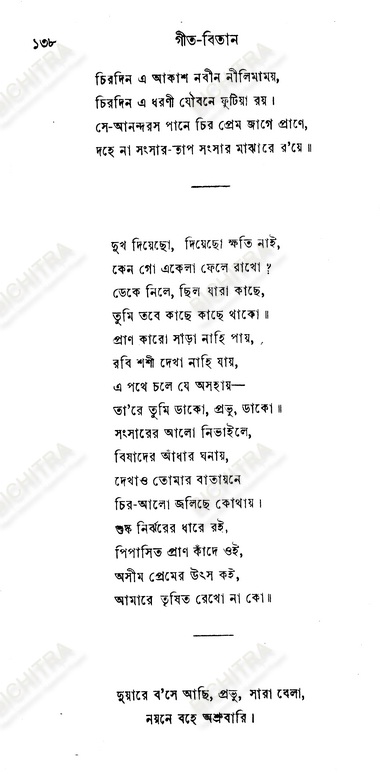 ১৩৮ গীত-বিতান
চিরদিন এ আকাশ নবীন নীলিমাময়,
চিরদিন এ ধরণী যৌবনে ফুটিয়া রয়।
সে-আনন্দরস পানে চির প্রেম জাগে প্রাণে,
দহে না সংসার-তাপ সংসার মাঝারে র'য়ে॥
দুখ দিয়েছো, দিয়েছো ক্ষতি নাই,
কেন গো একেলা ফেলে রাখো?
ডেকে নিলে, ছিল যারা কাছে,
তুমি তবে কাছে কাছে থাকো॥
প্রাণ কারো সাড়া নাহি পায়,
রবি শশী দেখা নাহি যায়,
এ পথে চলে যে অসহায়—
তা'রে তুমি ডাকো, প্রভু, ডাকো॥
সংসারের আলো নিভাইলে,
বিষাদের আঁধার ঘনায়,
দেখাও তোমার বাতায়নে
চির-আলো জলিছে কোথায়।
শুষ্ক নির্ঝরের ধারে রই,
পিপাসিত প্রাণ কাঁদে ওই,
অসীম প্রেমের উৎস কই,
আমারে তৃষিত রেখো না কো॥
দুয়ারে ব'সে আছি, প্রভু, সারা বেলা,
নয়নে বহে অশ্রুবারি।
BICHITRA
BICHITRA
BICHITRA
BICHITRA
BICHITRA
BICHITRA